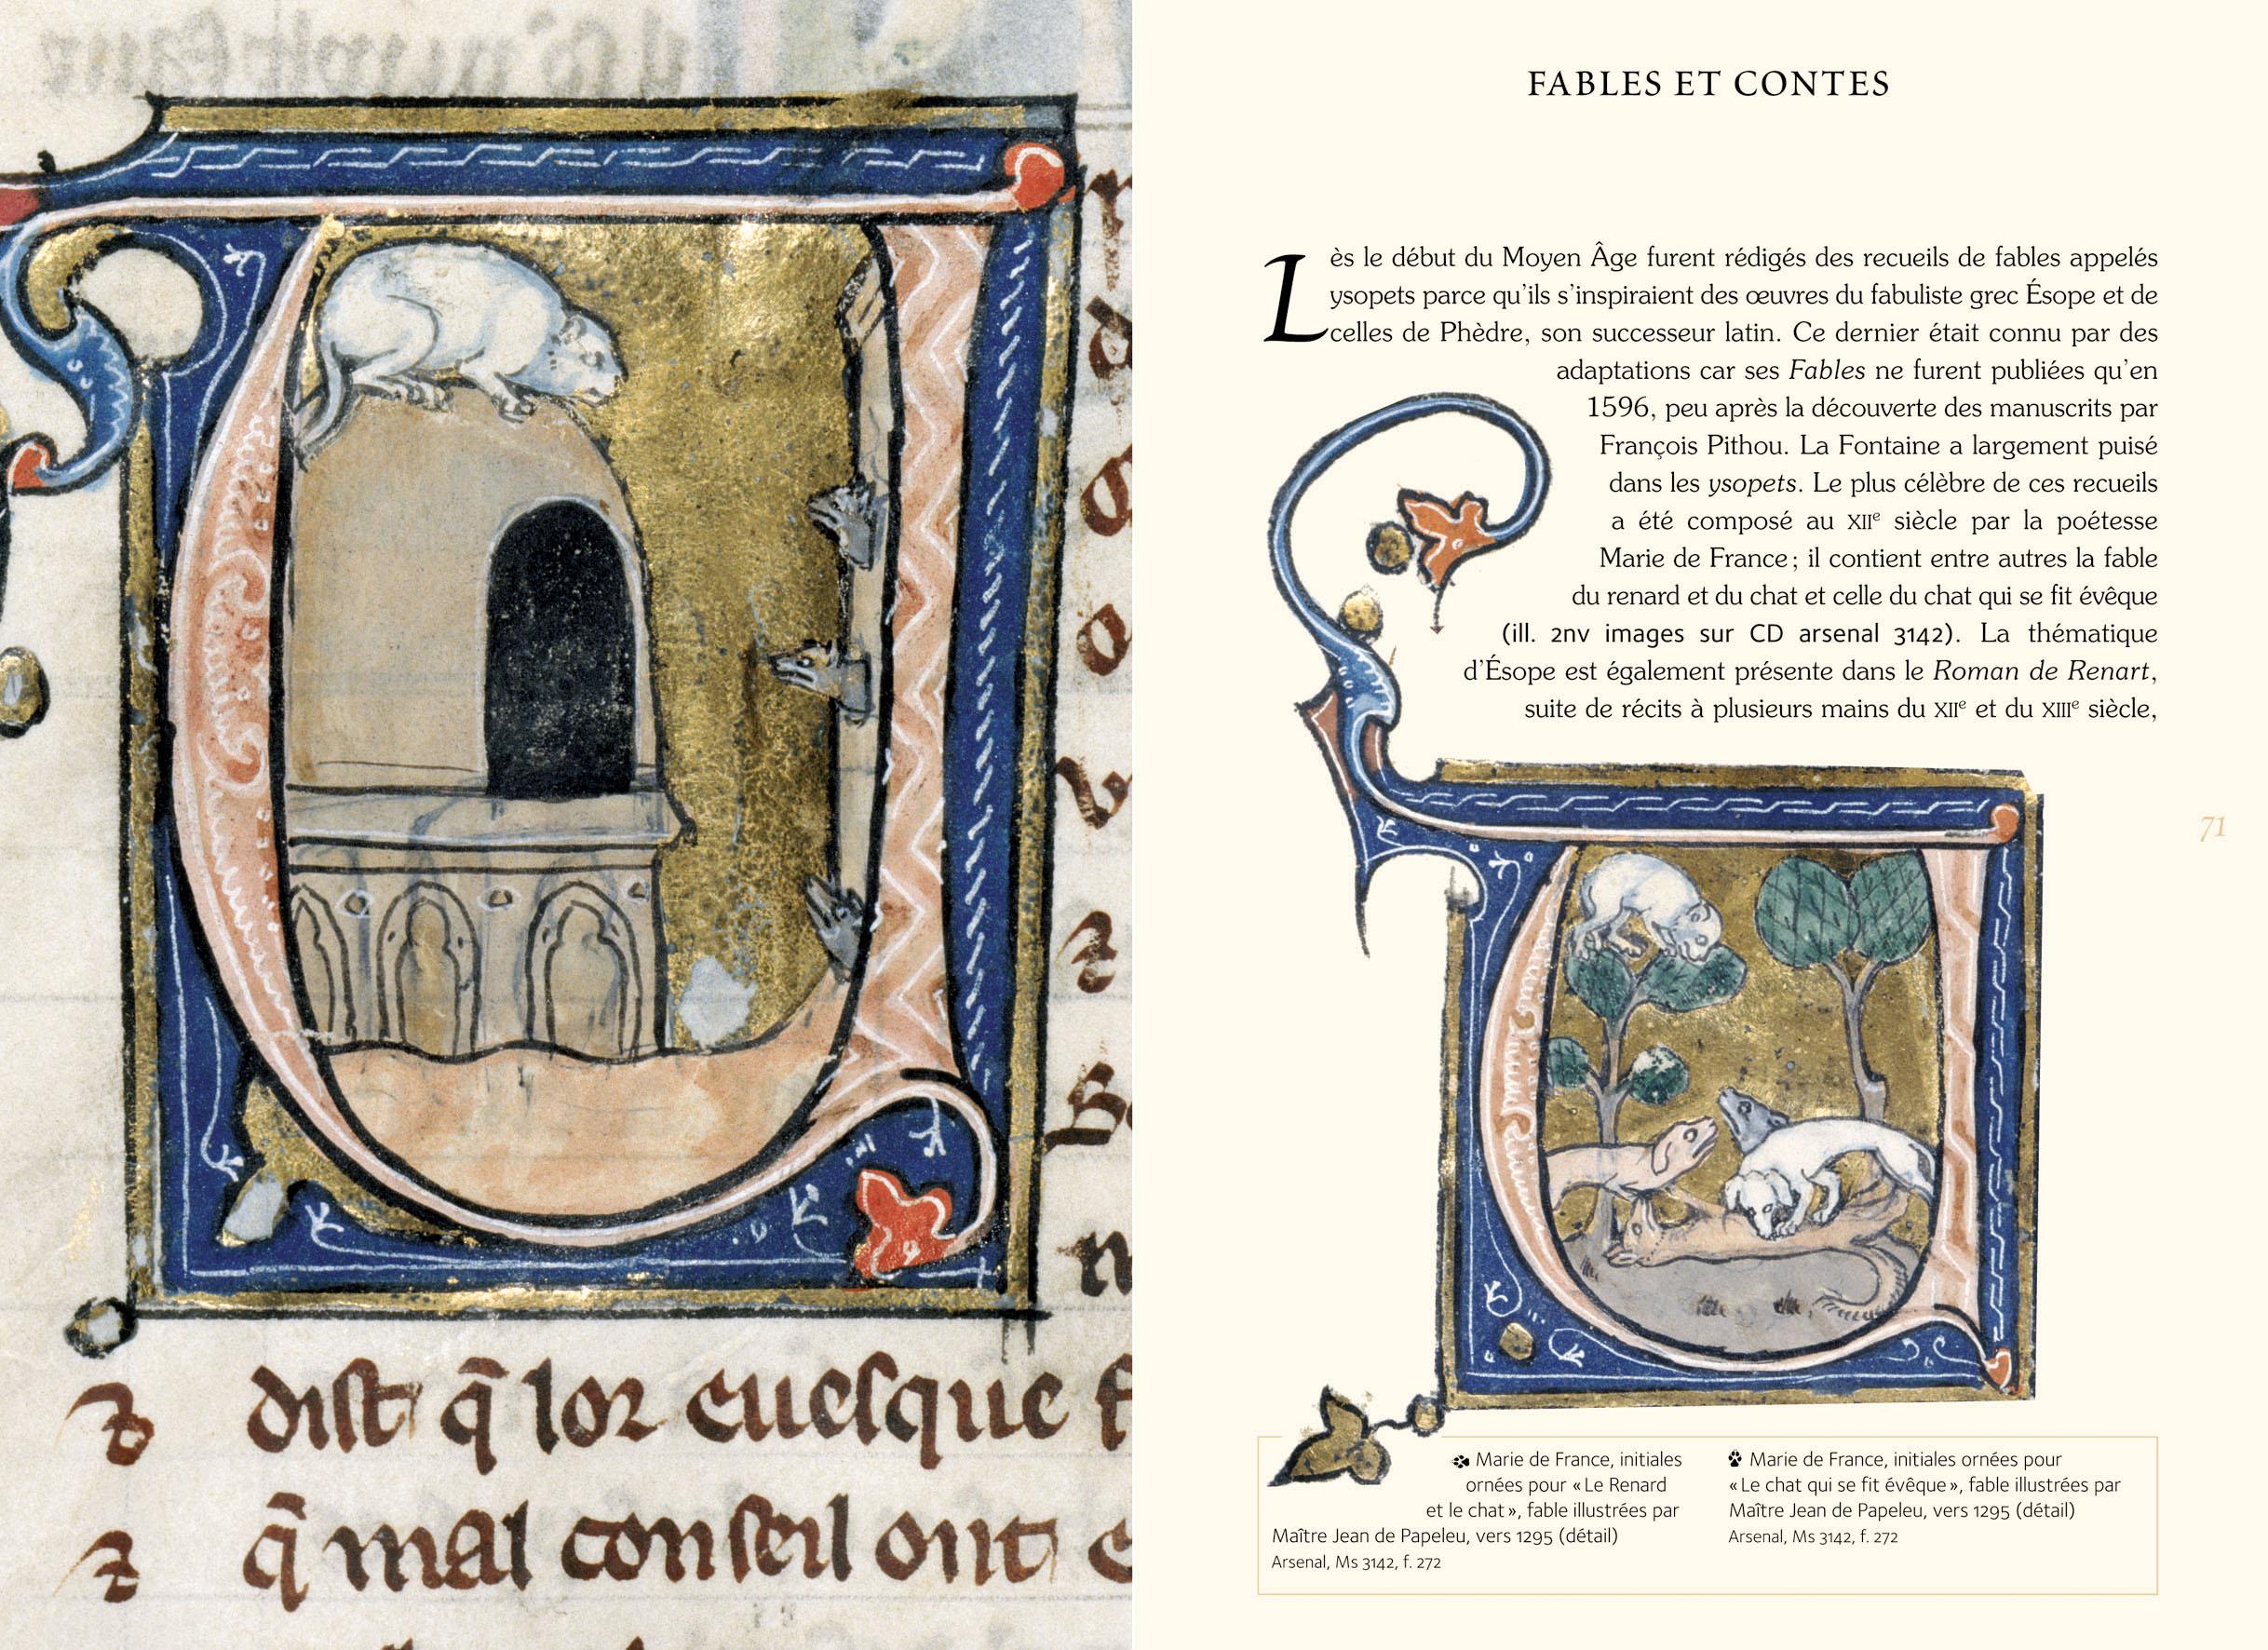 dist q̃ lor euesque f
q̃ mal conseil ont e
FABLES ET CONTES
Lès le début du Moyen Âge furent rédigés des recueils de fables appelés
ysopets parce qu’ils s’inspiraient des œuvres du fabuliste grec Ésope et de
celles de Phèdre, son successeur latin. Ce dernier était connu par des
adaptations car ses Fables ne furent publiées qu’en
1596, peu après la découverte des manuscrits par
François Pithou. La Fontaine a largement puisé
dans les ysopets. Le plus célèbre de ces recueils
a été composé au XIIe siècle par la poétesse
Marie de France ; il contient entre autres la fable
du renard et du chat et celle du chat qui se fit évêque
(ill. 2nv images sur CD arsenal 3142). La thématique
d’Ésope est également présente dans le Roman de Renart,
suite de récits à plusieurs mains du XIIe et du XIIIe siècle,
71
Marie de France, initiales
ornées pour « Le Renard
et le chat », fable illustrées par
Maître Jean de Papeleu, vers 1295 (détail)
Arsenal, Ms 3142, f. 272
Marie de France, initiales ornées pour
« Le chat qui se fit évêque », fable illustrées par
Maître Jean de Papeleu, vers 1295 (détail)
Arsenal, Ms 3142, f. 272